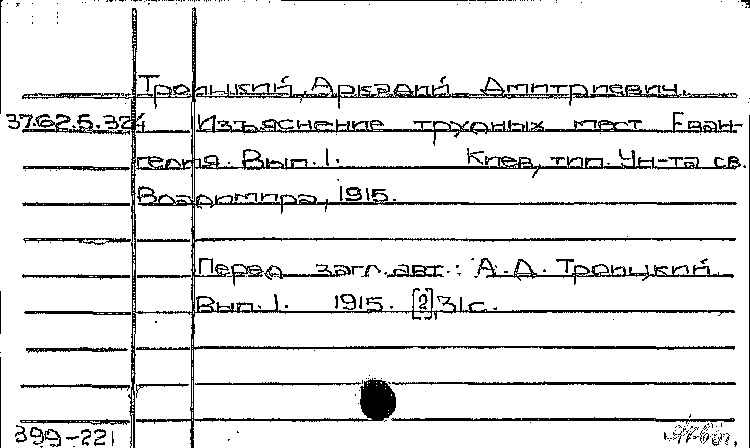 Троицкий, Аркадий Дмитриевич.
37.62.5.324 Изъяснение трудных мест Еван-
гелия. Вып. 1. Киев, тип. Ун-та св.
Владимира, 1915.
Перед загл. авт.: А.Д. Троицкий
Вып. 1. 1915. [2], 31 с.
399-221